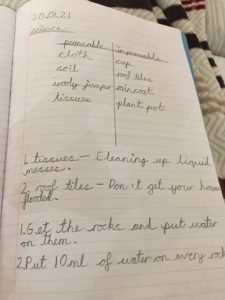 20.04.21
science
permeable impermeable
cloth cup
soil roof tiles
wooly jumper raincoat
tissues plant pot
1. tissues - Cleaning up liquid
messes.
2. roof tiles - Don't get your house
flooded.
1. Get the rocks and put water
on them.
2. Put 10ml of water on every rock